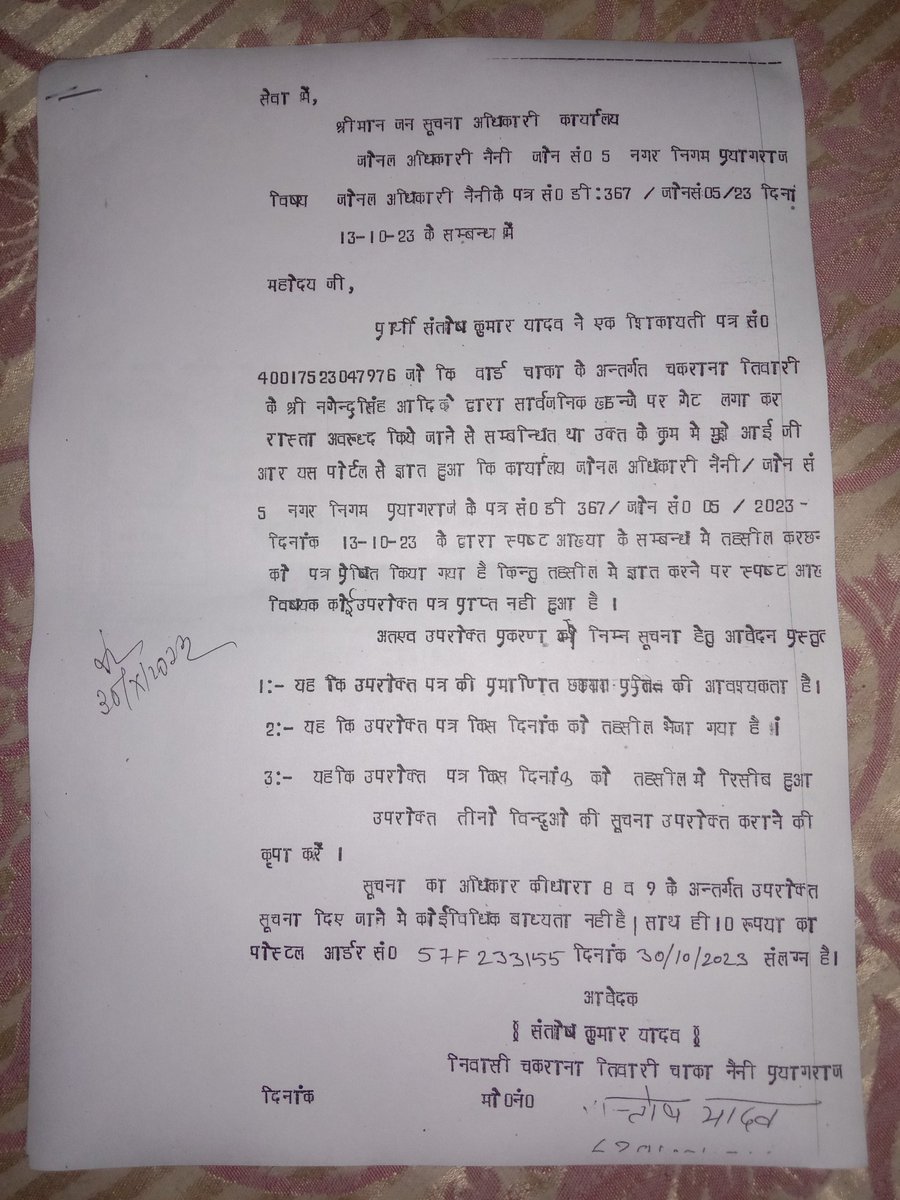 सेवा में,
श्रीमान जन सूचना अधिकारी कार्यालय
जोनल अधिकारी नैनी जोन सं0 5 नगर निगम प्रयागराज
विषय जोनल अधिकारी नैनीके पत्र सं0 डी:367 / जोनसं05/23 दिनां
13-10-23 के सम्बन्ध में
महोदय जी,
प्रार्थी संतोष कुमार यादव ने एक शिकायती पत्र सं0
40017523047976 जो कि वार्ड चाका के अन्तर्गत चकराना तिवारी
के श्री नगेन्द्रसिंह आदि के द्वारा सार्वजनिक खडन्जे पर गेट लगा कर
रास्ता अवरूध्द किये जाने से सम्बन्धित था उक्त के क्रम मे मुझे आई जी
आर यस पोर्टल से ज्ञात हुआ कि कार्यालय जोनल अधिकारी नैनी/ जोन सं
5 नगर निगम प्रयागराज के पत्र सं0 डी 367/ जोन सं0 05 / 2023-
दिनांक 13-10-23 के द्वारा स्पष्ट आख्या के सम्बन्ध मे तहसील करछन
को पत्र प्रेषित किया गया है किन्तु तहसील मे ज्ञात करने पर स्पष्ट आख
विषयक कोईउपरोक्त पत्र प्राप्त नही हुआ है ।
अतएव उपरोक्त प्रकरण की निम्न सूचना हेतु आवेदन प्रस्तुत
1:- यह कि उपरोक्त पत्र की प्रमाणित की आवश्यकता है।
2:- यह कि उपरोक्त पत्र किस दिनांक को तहसील भेजा गया है ।
3:- यहकि उपरोक्त पत्र किस दिनांक को तहसील मे रिसीब हुआ
उपरोक्त तीनो विन्दुओ की सूचना उपरोक्त कराने की
कृपा करें ।
सूचना का अधिकार कीधारा 8 व 9 के अन्तर्गत उपरोक्त
सूचना दिए जाने मे कोईविधिक बाध्यता नहीहै | साथ ही 10 रूपया का
पोस्टल आर्डर सं0 57F 233155 दिनांक 30/10/2023 संलग्न है।
30/X/2023
आवेदक
संतोष कुमार यादव
निवासी चकराना तिवारी चाका नैनी प्रयागराज
दिनांक मो0नं0 सन्तोष यादव